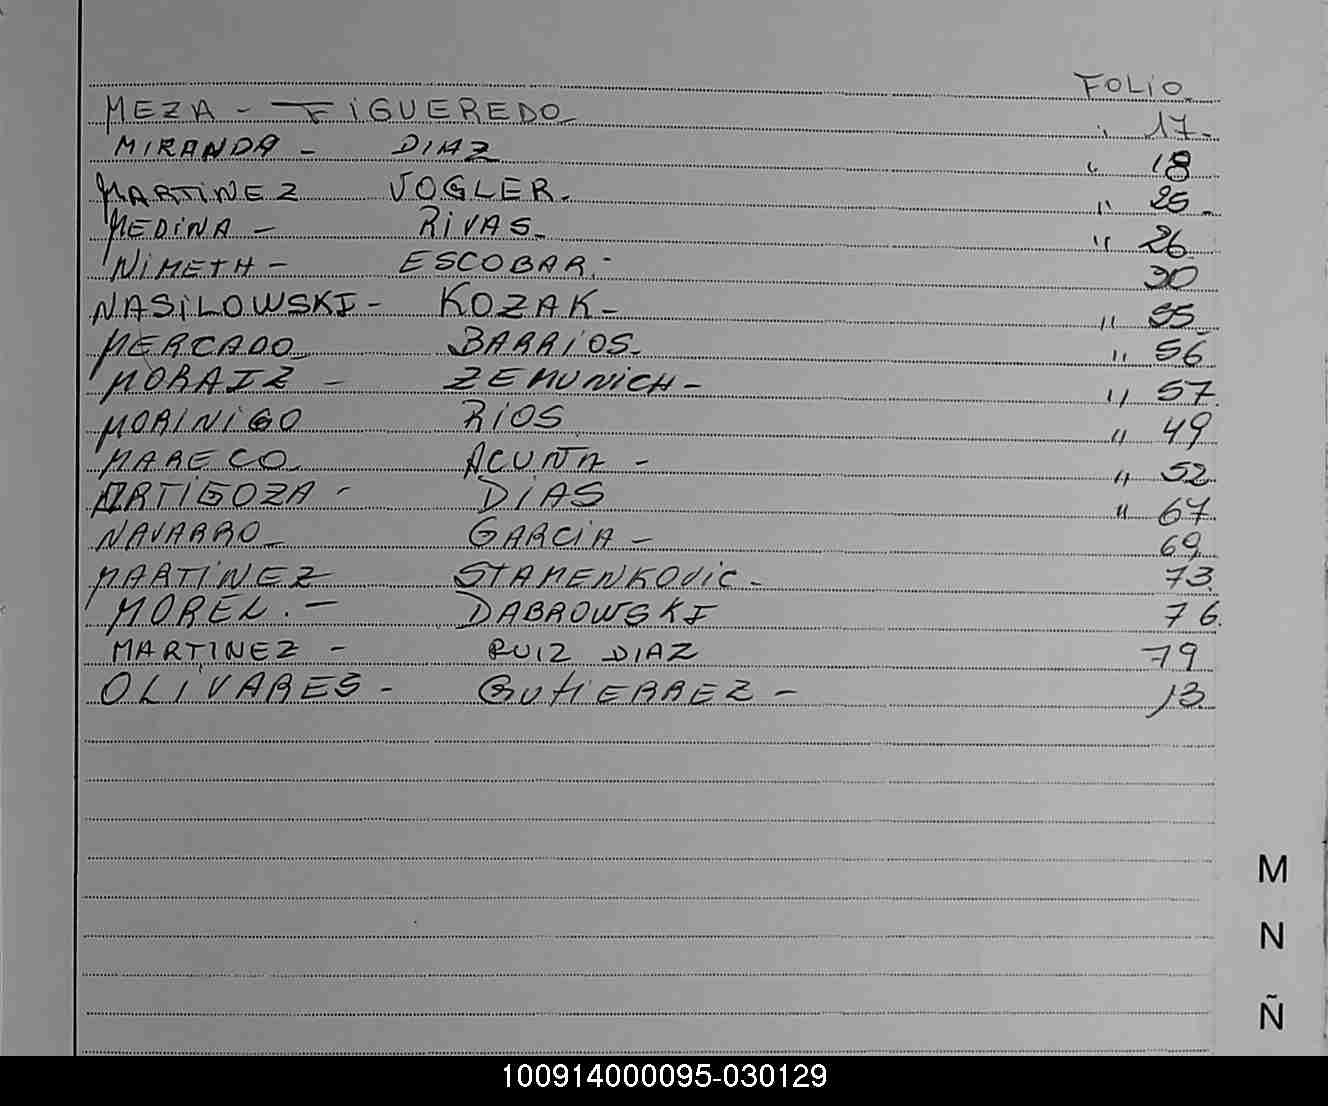 FOLIO
MEZA - FIGUEREDO " 17-
MIRANDA - DIAZ " 18
MARTINEZ VOGLER. " 25-
MEDINA - RIVAS- " 26
NIMETH - ESCOBAR.- 30
NASILOWSKI - KOZAK- " 55
MERCADO BARRIOS- " 56
MORAIZ - ZEMUNICH- " 57
MORINIGO RIOS " 49
MARECO ACUÑA - " 52
ORTIGOZA - DIAS " 67
NAVARRO- GARCIA- 69
MARTINEZ STAMENKOVIC- 73
MOREL.- DABROWSKI 76.
MARTINEZ - RUIZ DIAZ 79
OLIVARES- GUTIERREZ- 13
M
N
Ñ
100914000095-030129